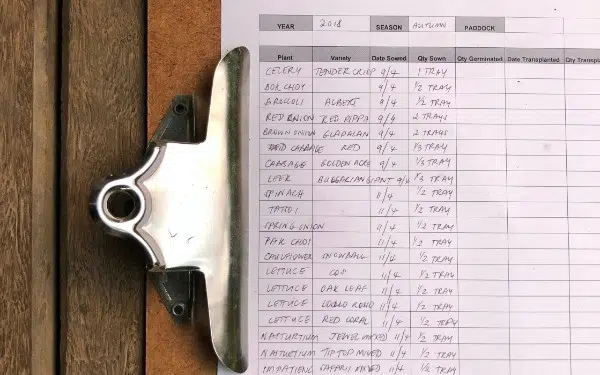 YEAR 2018 SEASON AUTUMN PADDOCK
Plant Variety Date Sowed Qty Sown Qty Germinated Date Transplanted Qty Transpla
CELERY TENDER CRISP 9/4 1 TRAY
BOK CHOY 9/4 1/2 TRAY
BROCCOLI ALBERT 9/4 1/2 TRAY
RED ONION RED PIPPA 9/4 2 TRAYS
BROWN ONION GLADALAN 9/4 2 TRAYS
RED CABBAGE RED 9/4 1/3 TRAY
CABBAGE GOLDEN ACRE 9/4 1/3 TRAY
LEEK BULGARIAN GIANT 9/4 1/3 TRAY
SPINACH 11/4 1/2 TRAY
TATSOI 11/4 1/2 TRAY
SPRING ONION 11/4 1/2 TRAY
PAK CHOI 11/4 1/2 TRAY
CAULIFLOWER SNOWBALL 11/4 1/2 TRAY
LETTUCE COS 11/4 1/2 TRAY
LETTUCE OAK LEAF 11/4 1/2 TRAY
LETTUCE 11/4 1/2 TRAY
LETTUCE RED CORAL 11/4 1/2 TRAY
NASTURTIUM JEWEL MIXED 11/4 1/2 TRAY
NASTURTIUM TIP TOP MIXED 11/4 1/2 TRAY
IMPATIENS SAFARI MIXED 11/4 1/2 TRAY